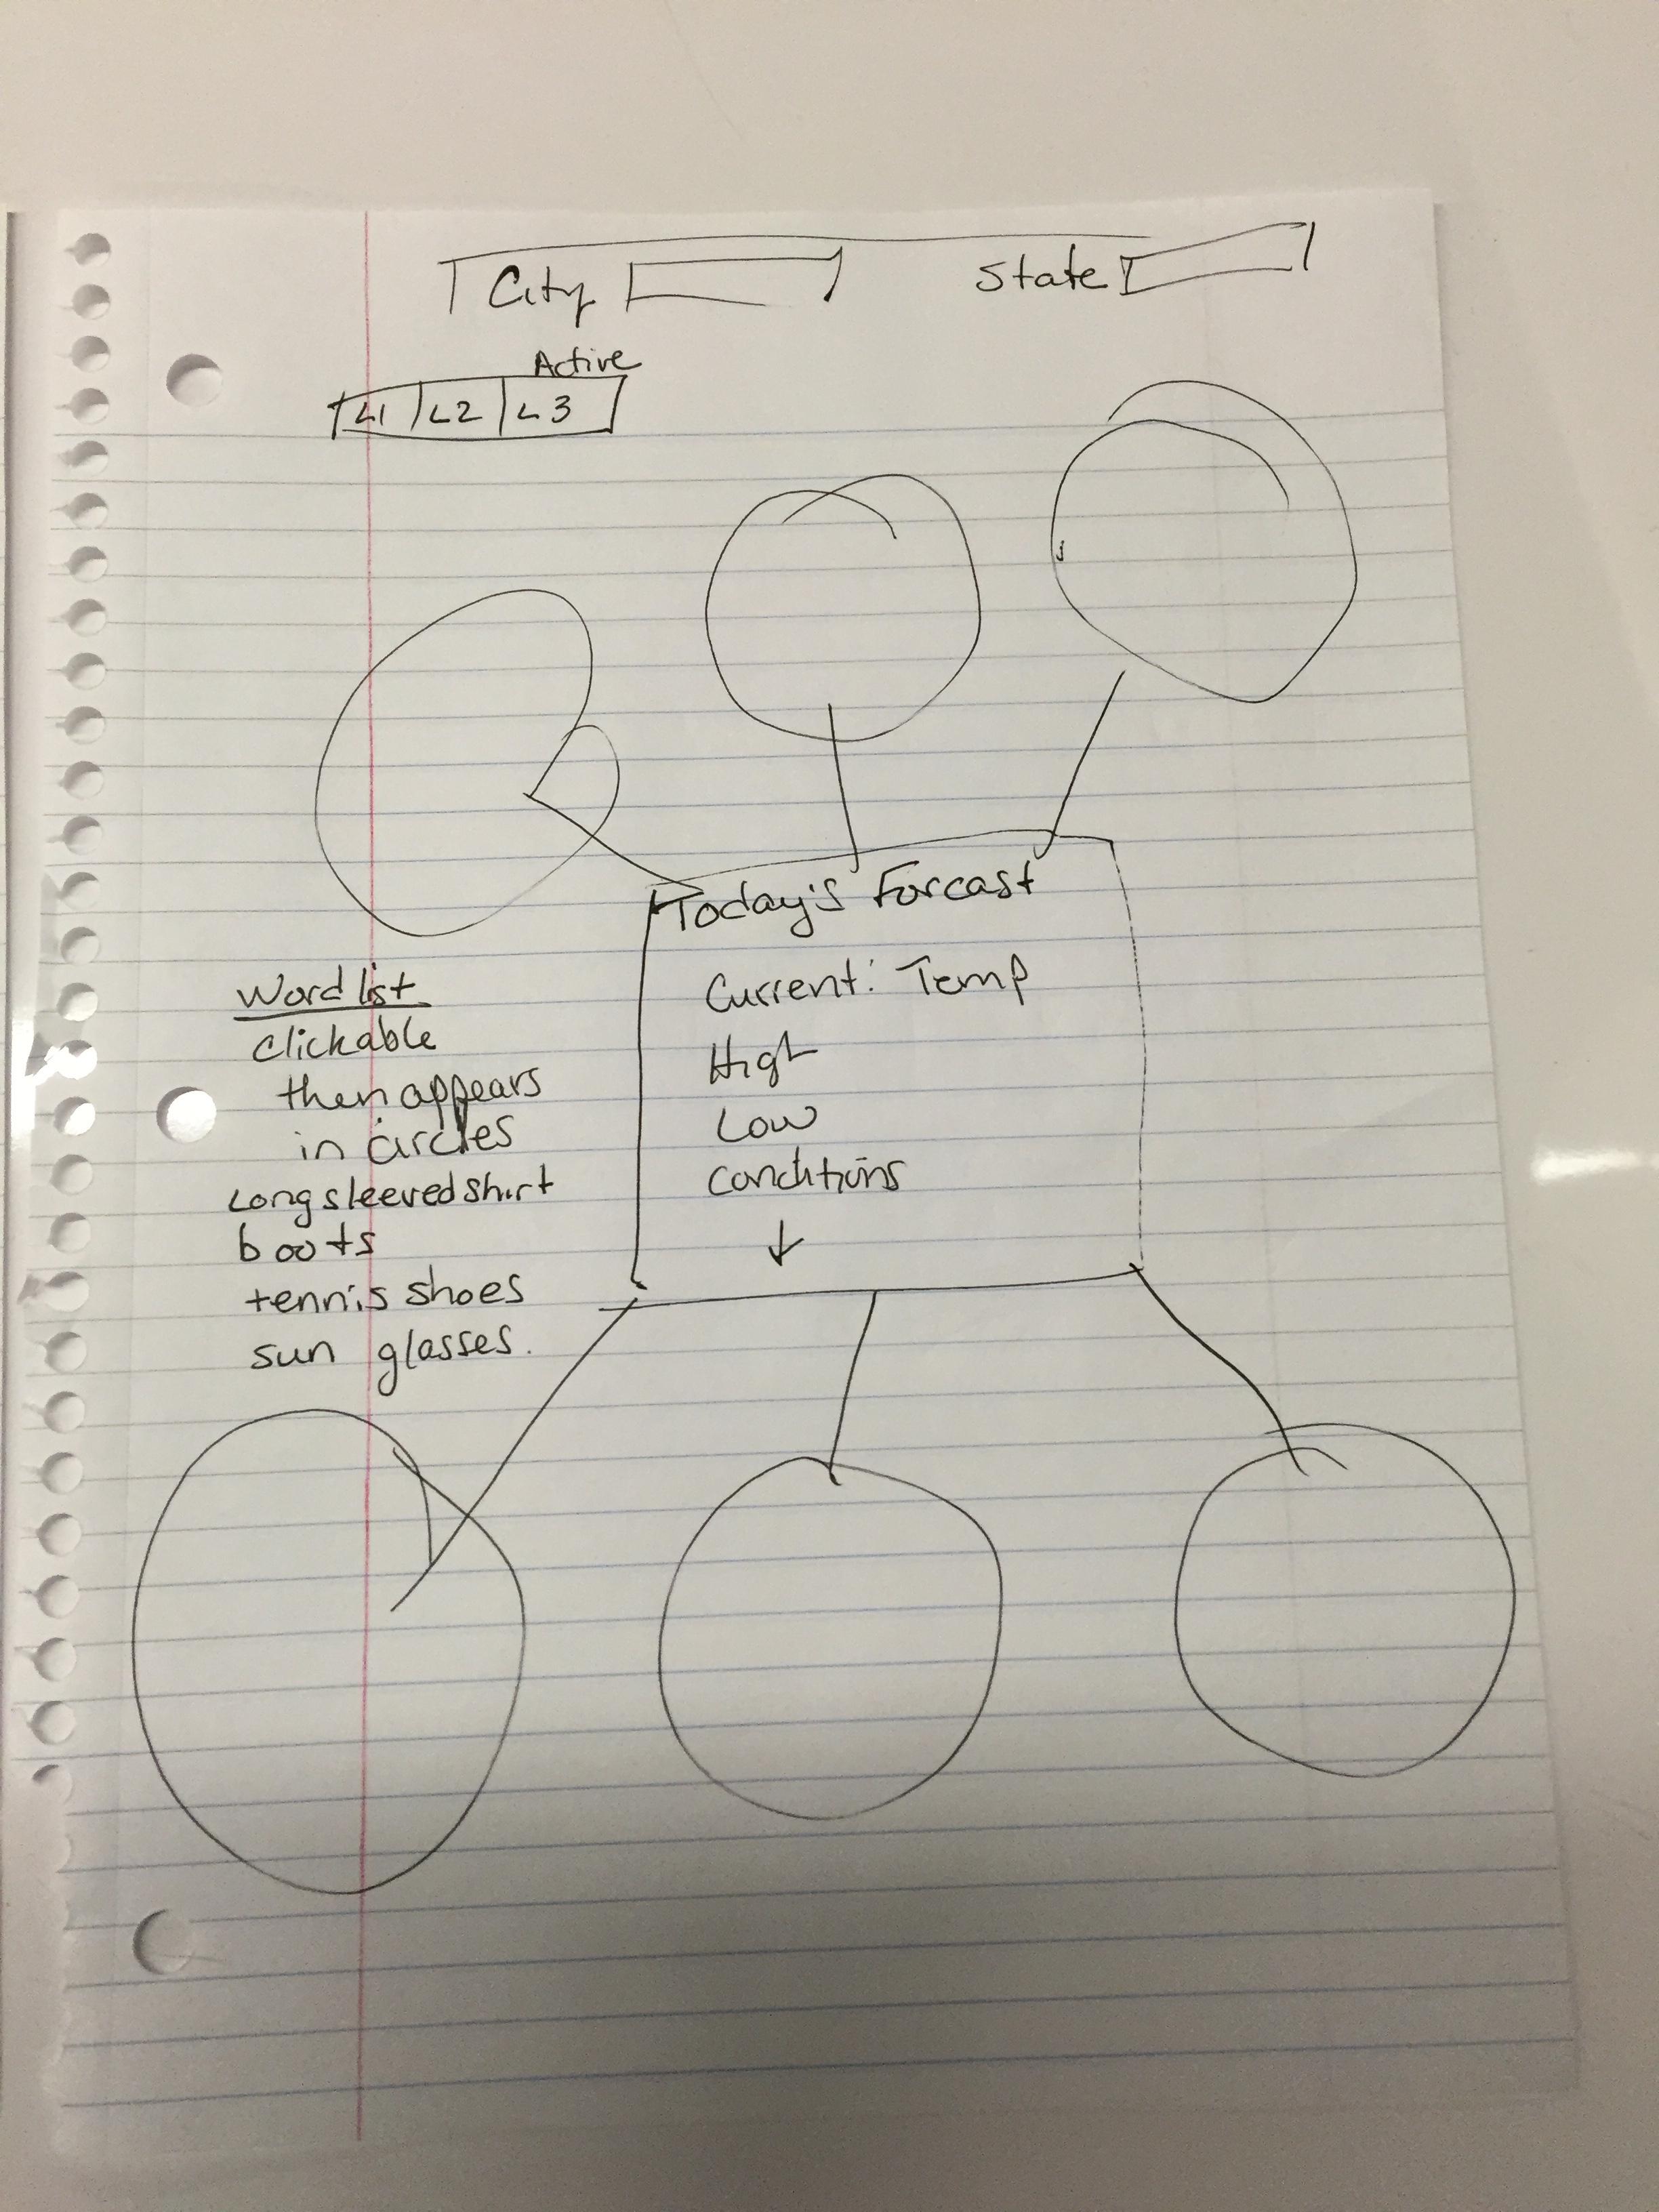 City State
Active
L1 L2 L3
Today's Forcast
Current: Temp
High
Low
Conditions
Word list
clickable
then appears
in circles
Long sleeved shirt
boots
tennis shoes
sun glasses.